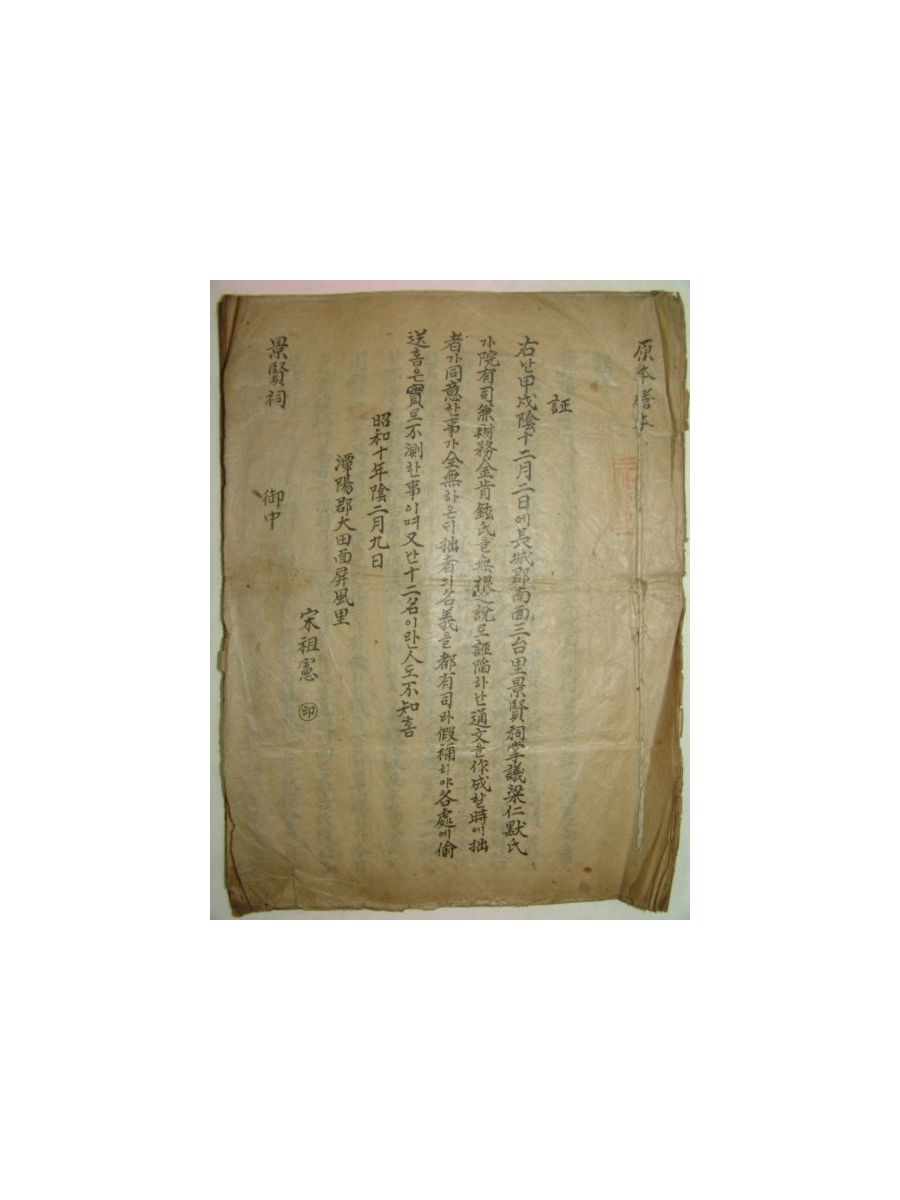 原本謄本
証
右난甲戌陰十二月二日에長城郡南面三台里景賢祠掌議梁仁默氏
가院有司兼財務金肯鉉氏를無根之說로誣陷하난通文을作成할時에拙
者가同意한事가全無하온대拙者의名義을都有司라假稱하야各處에偷
送홈은實로不測한事이며又난十二名이란人도不知홈
昭和十年陰二月九日
潭陽郡大田面屏風里
宋祖憲 ㊞
景賢祠
御中